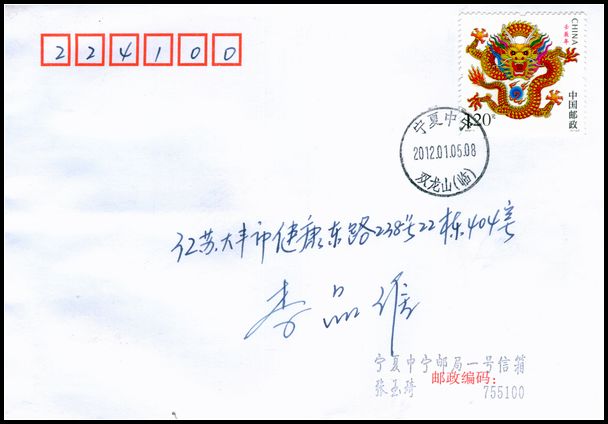 224100
CHINA
壬辰年
中国邮政
120
宁夏中宁
2012.01.05.08
双龙山(临)
江苏大丰市健康东路238号22栋404室
李品
宁夏中宁邮局一号信箱
张玉琦 邮政编码: 755100